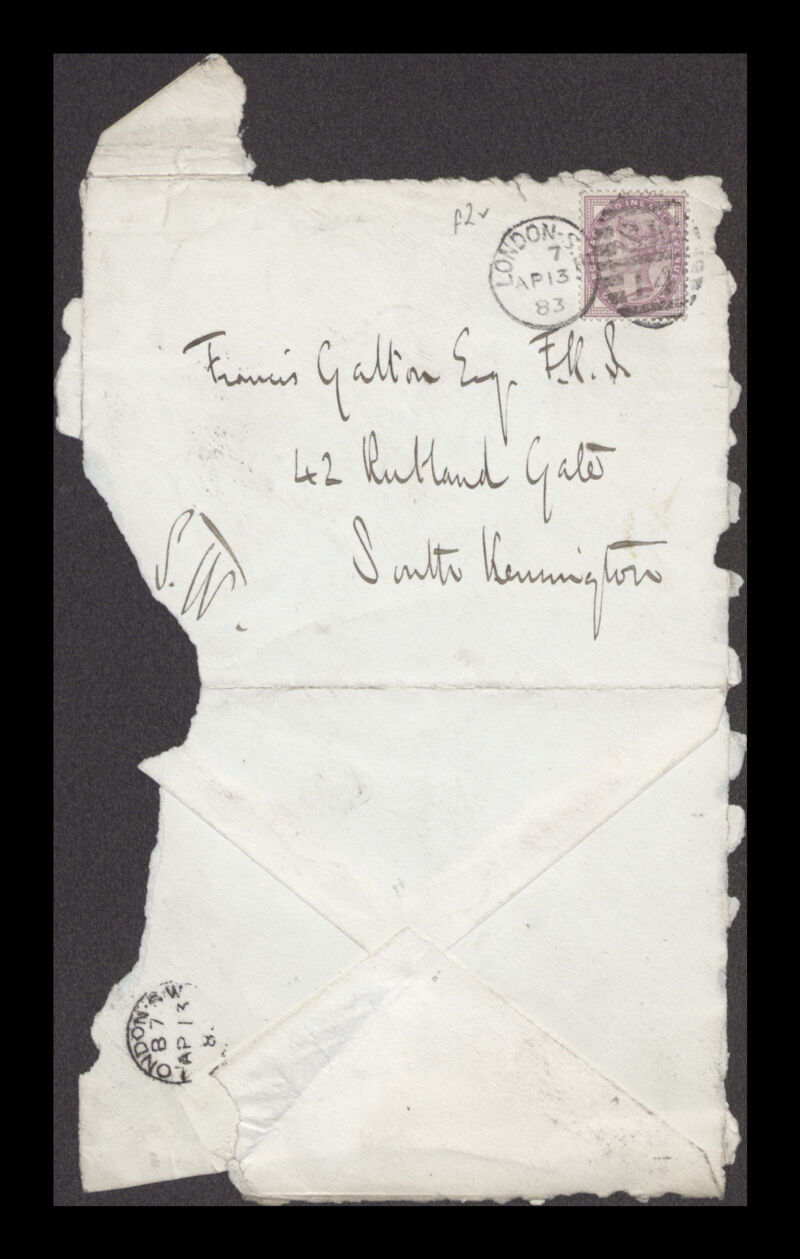 p2v
LONDON-S.
7
AP 13
83
INLAND REVENUE
Francis Galton Esq. F.R.S
42 Rutland Gate
South Kensington
S.W.
LONDON S W
B 7
AP 13
8